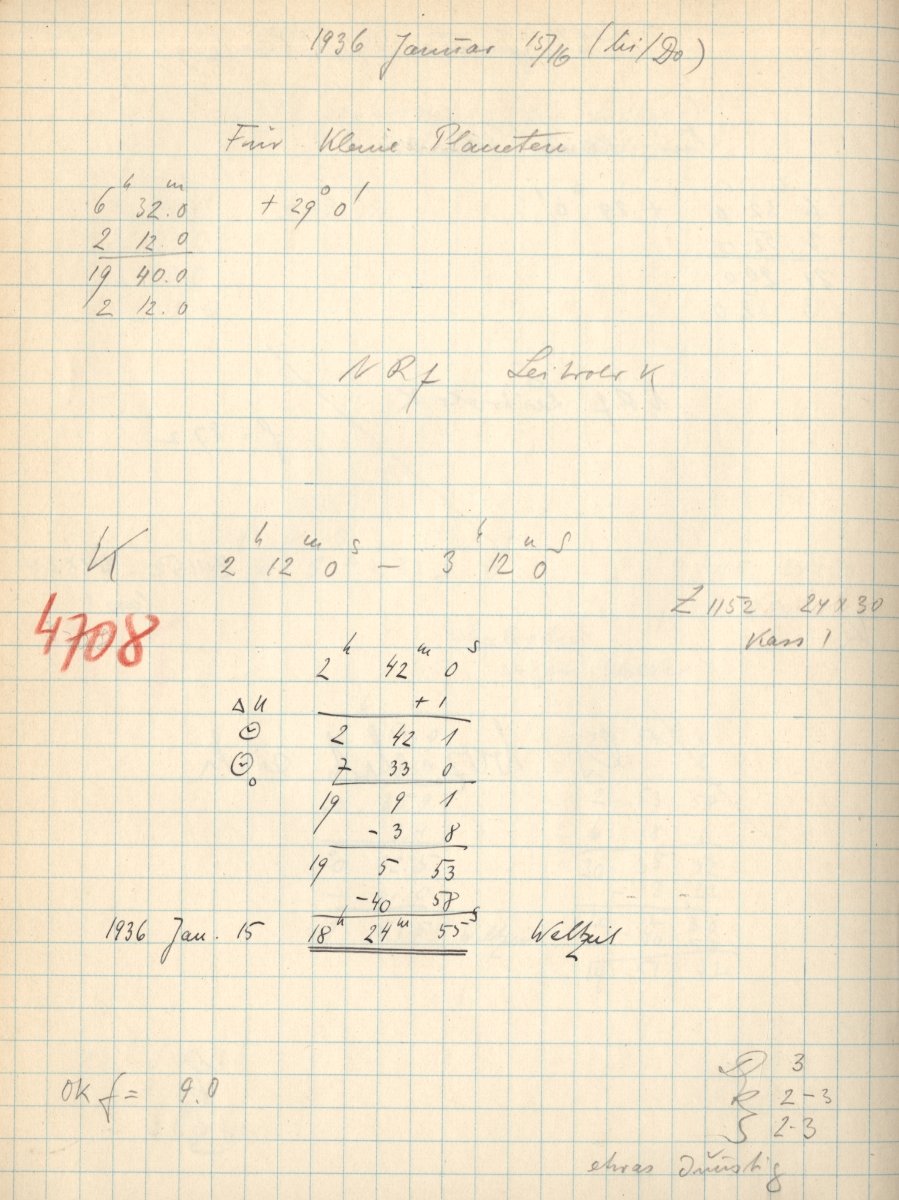 1936 Januar 15/16 (Mi/Do)
Für Kleine Planeten
6ʰ 32.0ᵐ + 29° 0'
2 12.0
19 40.0
2 12.0
N R f Leitrohr K
K 2ʰ 12ᵐ 0ˢ — 3ʰ 12ᵐ 0ˢ
Z 1152 24 x 30
Kass 1
4708
2ʰ 42ᵐ 0ˢ
Δ U + 1
2 42 1
7 33 0
19 9 1
- 3 8
19 5 53
- 40 58
1936 Jan. 15 18ʰ 24ᵐ 55ˢ Weltzeit
OK f = 9.0
D 3
R 2-3
S 2-3
etwas dunstig